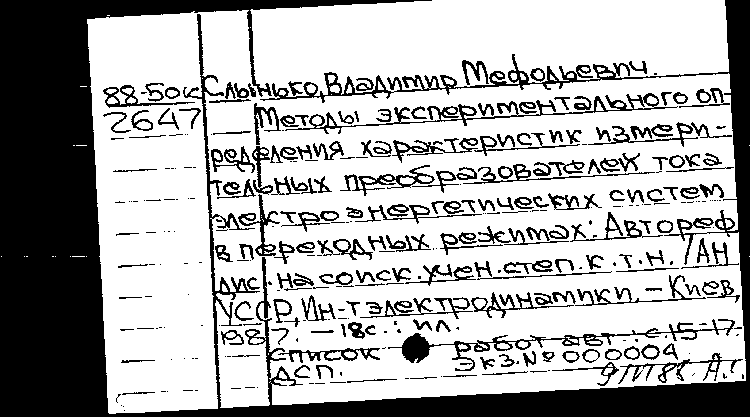 88-50к Слынько, Владимир Мефодьевич.
2647 Методы экспериментального оп-
ределения характеристик измери-
тельных преобразователей тока
электроэнергетических систем
в переходных режимах: Автореф.
дис. на соиск. учен. степ. к.т.н. /АН
УССР, Ин-т электродинамики. – Киев,
1987. – 18с.: ил.
Список работ авт.: с.15-17
ДСП. Экз. № 000004